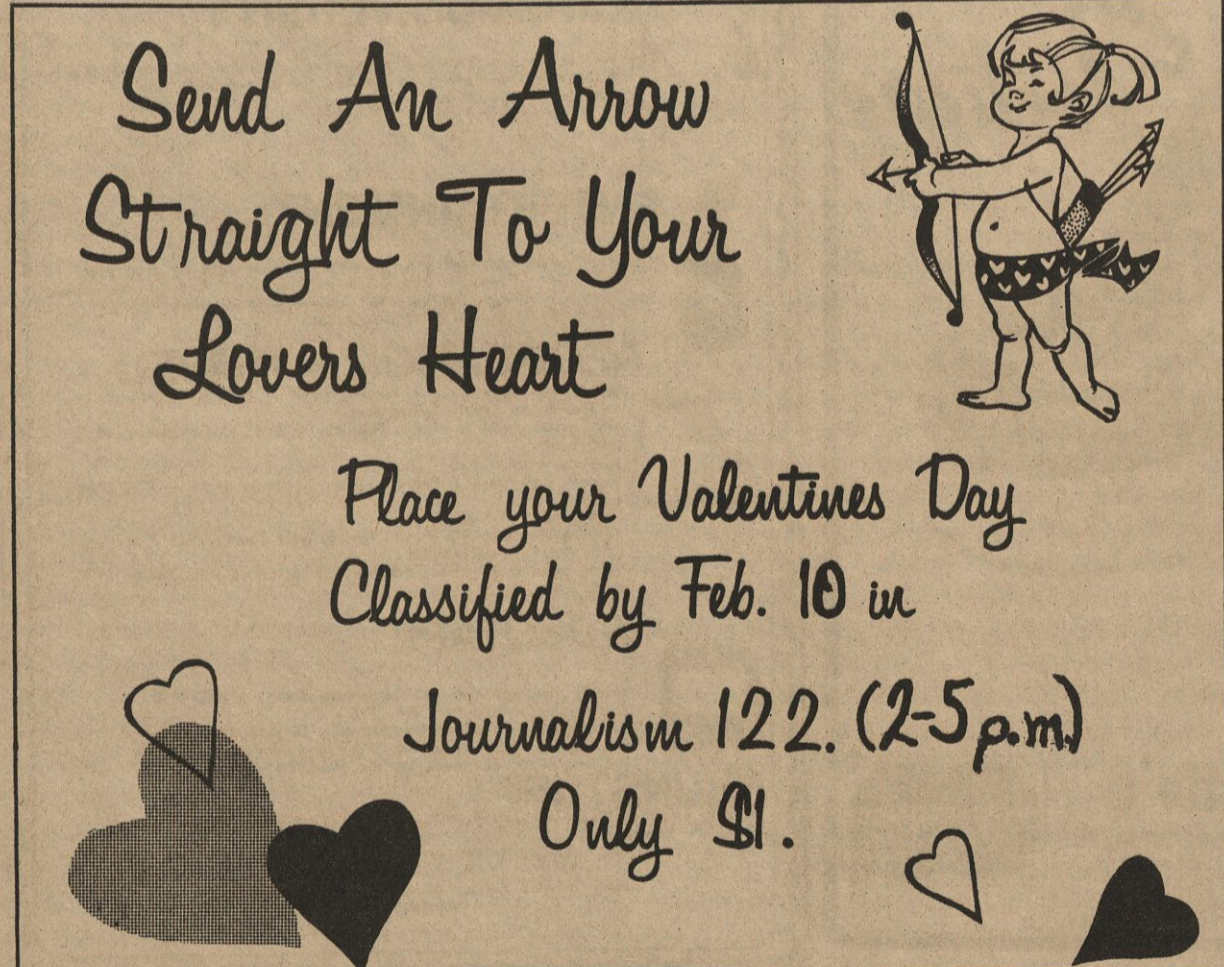 Send An Arrow
Straight To Your
Lovers Heart
Place your Valentines Day
Classified by Feb. 10 in
Journalism 122. (2-5 p.m.)
Only $1.